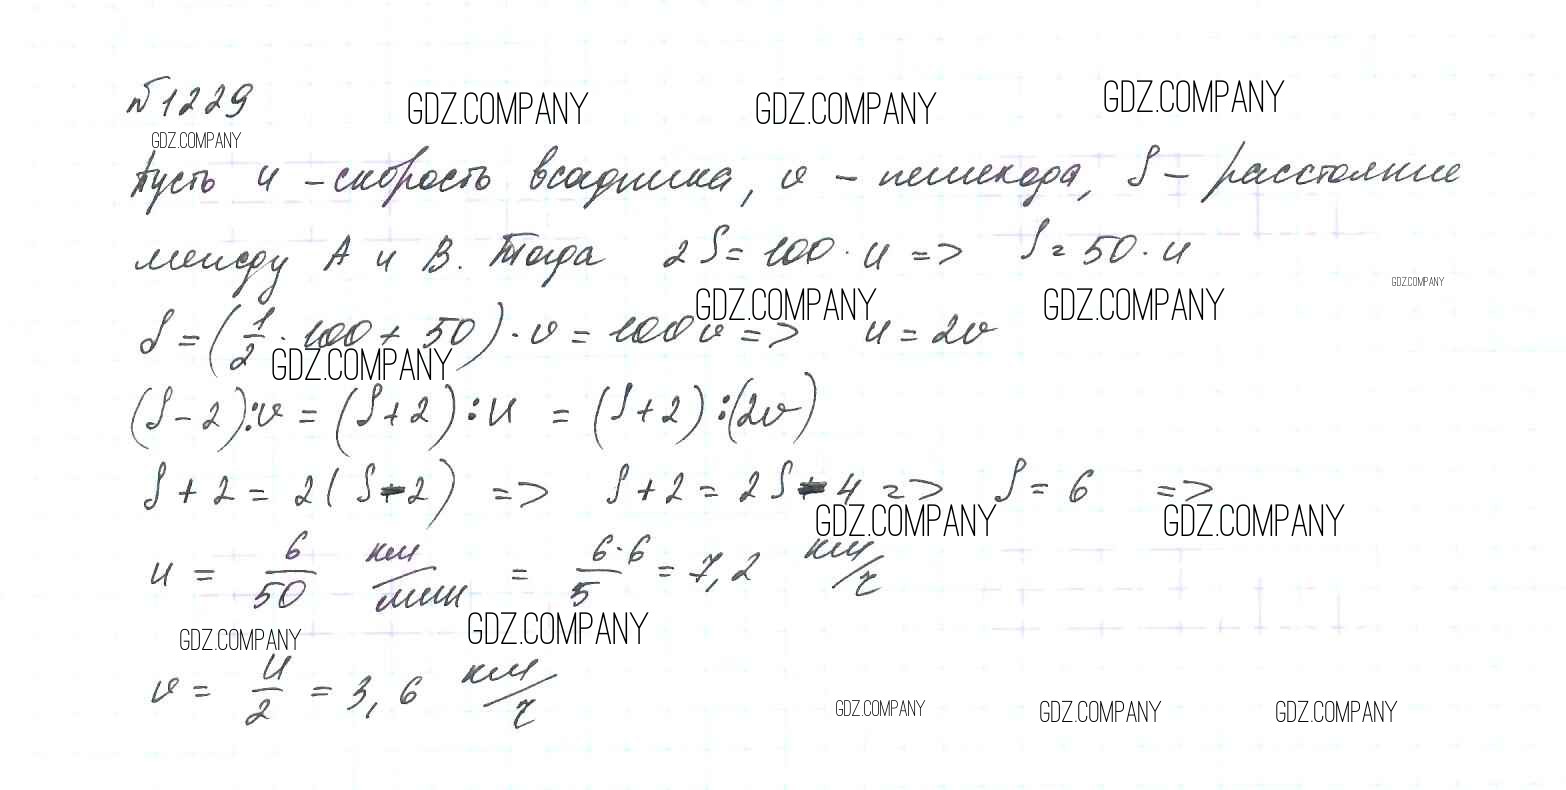 №1229
GDZ.COMPANY GDZ.COMPANY GDZ.COMPANY
GDZ.COMPANY
Пусть u – скорость всадника, v – пешехода, S – расстояние
между A и B. Тогда 2S = 100 · u => S = 50 · u
GDZ.COMPANY
GDZ.COMPANY GDZ.COMPANY
S = (1/2 · 100 + 50) · v = 100v => u = 2v
GDZ.COMPANY
(S – 2) : v = (S + 2) : u = (S + 2) : (2v)
S + 2 = 2(S – 2) => S + 2 = 2S – 4 => S = 6 =>
GDZ.COMPANY GDZ.COMPANY
u = 6/50 км/мин = 6·6/5 = 7,2 км/ч
GDZ.COMPANY GDZ.COMPANY
v = u/2 = 3,6 км/ч
GDZ.COMPANY GDZ.COMPANY GDZ.COMPANY